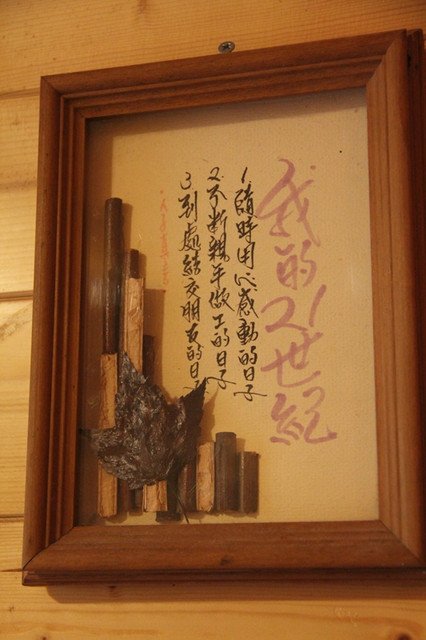 我的21世紀
1.隨時用心感動的日子
2.不斷親手做工的日子
3.到處結交朋友的日子